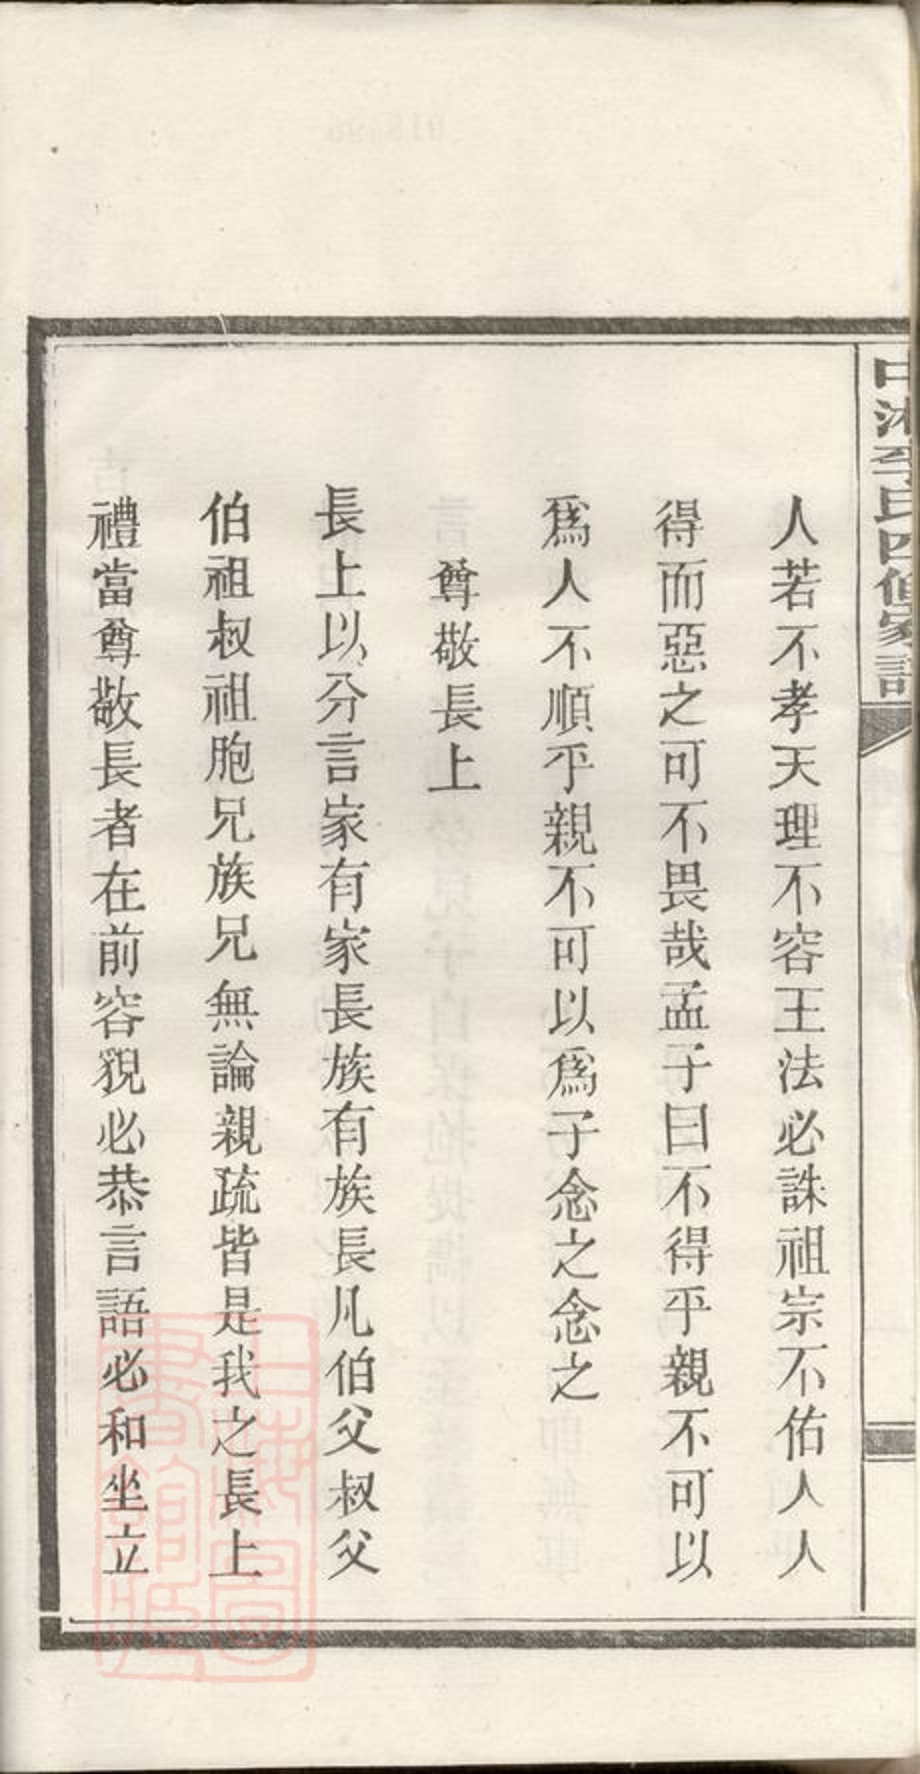 中湘李氏四修家譜
人若不孝天理不容王法必誅祖宗不佑人人
得而惡之可不畏哉孟子曰不得乎親不可以
爲人不順乎親不可以爲子念之念之
尊敬長上
長上以分言家有家長族有族長凡伯父叔父
伯祖叔祖胞兄族兄無論親疏皆是我之長上
禮當尊敬長者在前容貌必恭言語必和坐立
上海圖書館藏